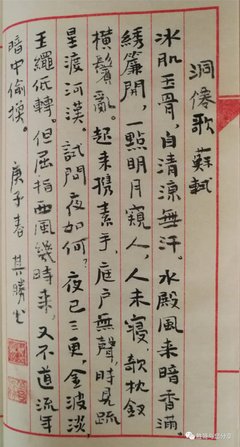 洞僊歌 蘇軾
冰肌玉骨,自清凉無汗。水殿風来暗香滿
綉簾開,一點明月窺人,人未寢,欹枕釵
横鬢亂。起来携素手,庭户無聲,時見疏
星渡河漢。試問夜如何?夜已三更,金波淡
玉繩低轉。但屈指西風幾時来,又不道流年
暗中偷換。 庚子春 其勝书